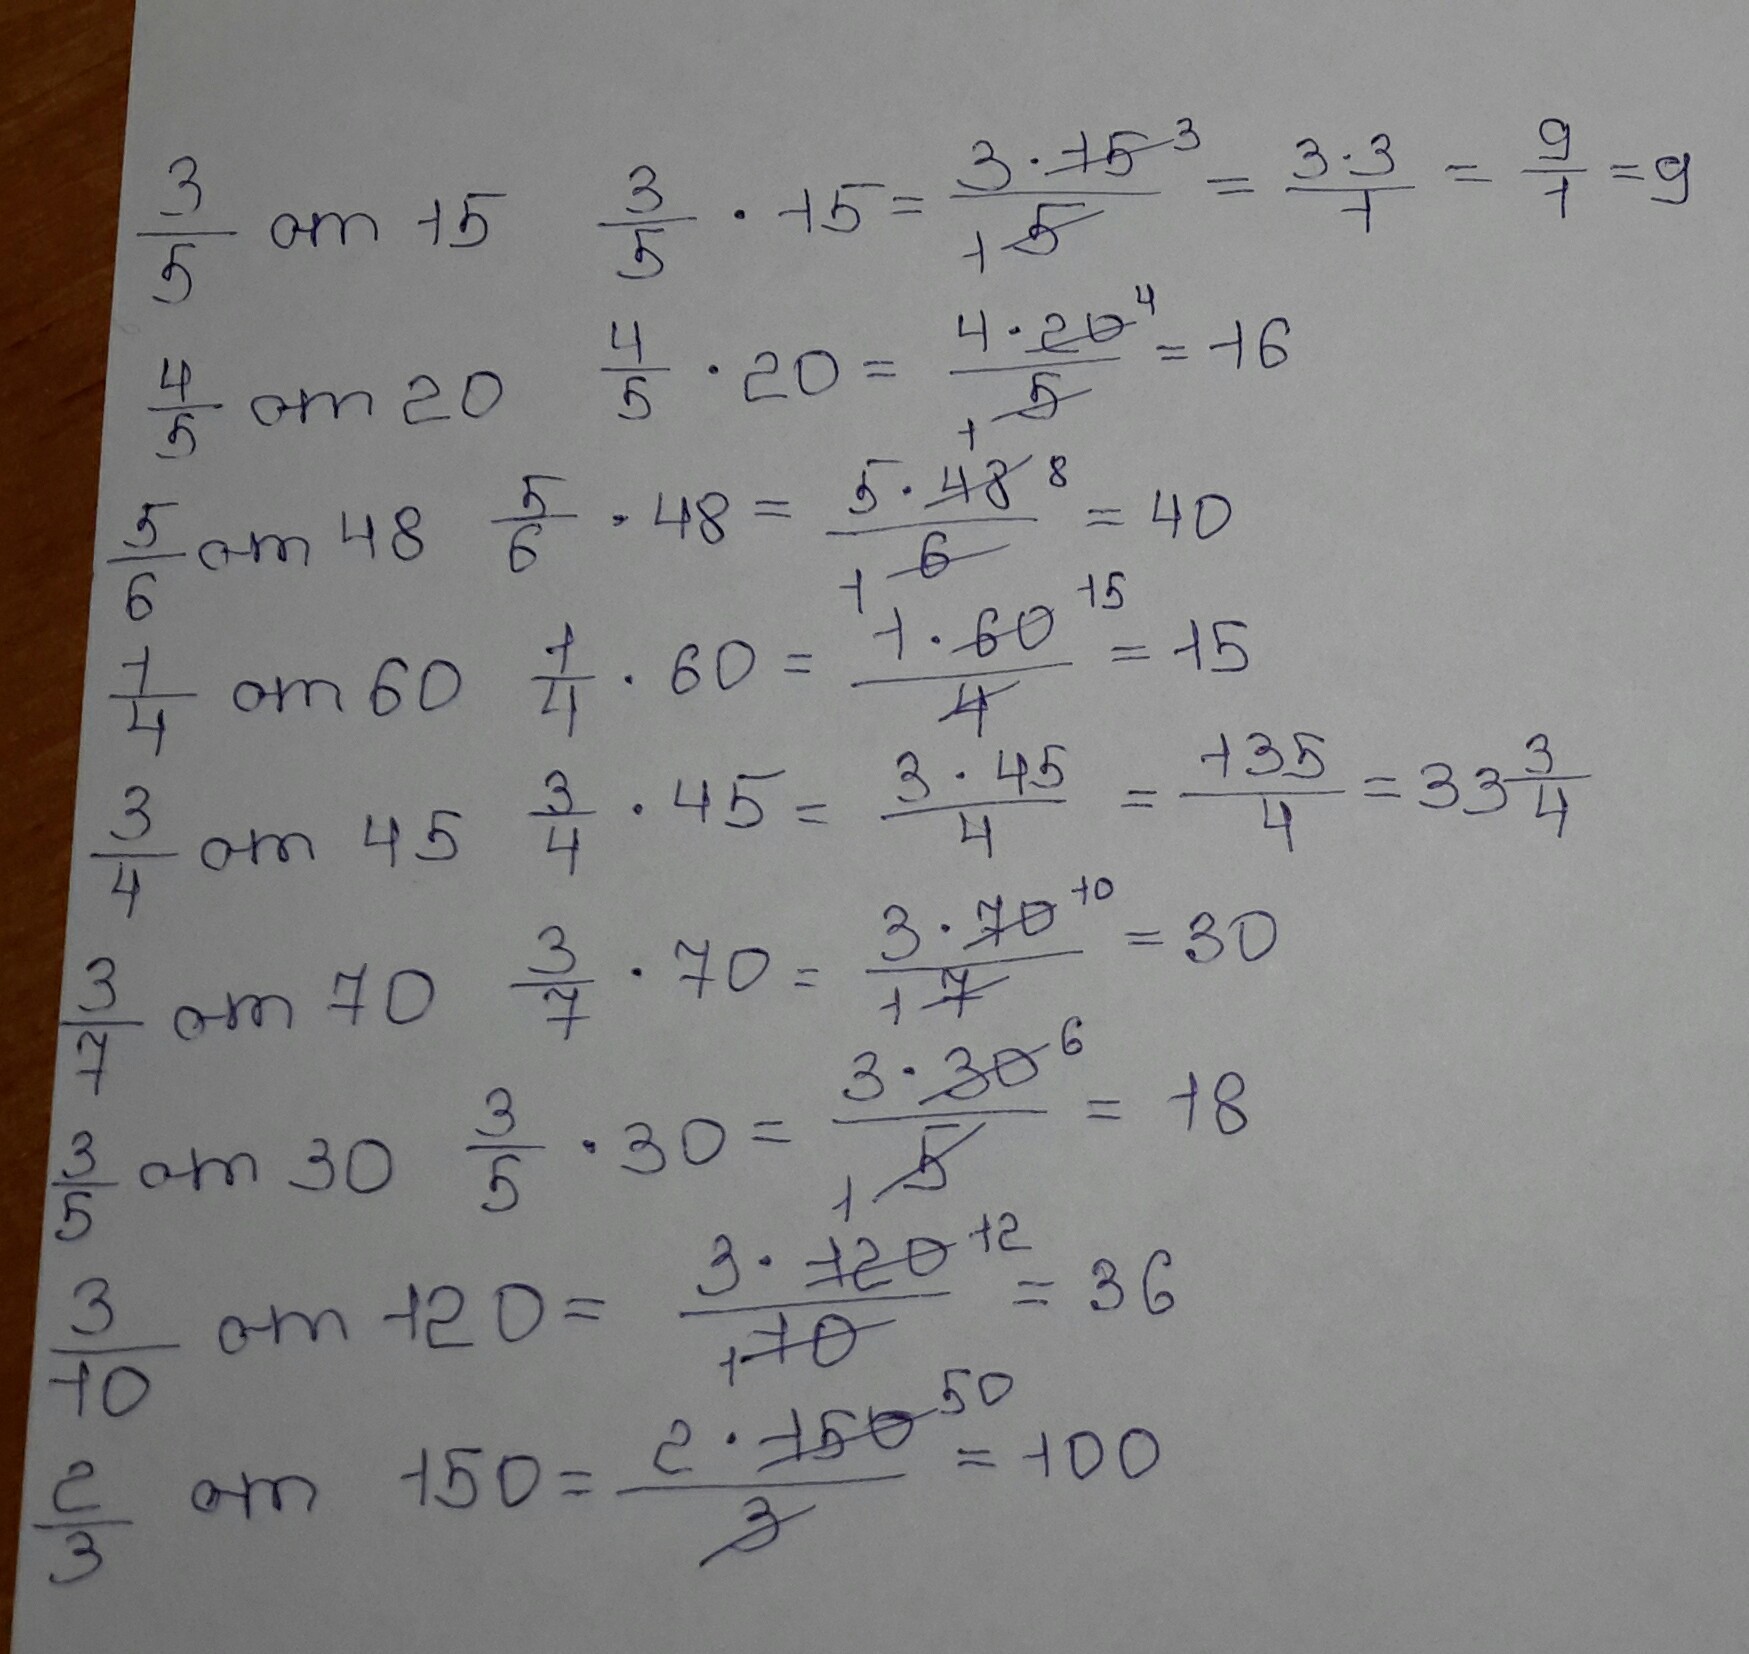 3/5 от 15 3/5 · 15 = 3 · 15 3 / 1 5 = 3·3/1 = 9/1 = 9
4/5 от 20 4/5 · 20 = 4 · 20 4 / 1 5 = 16
5/6 от 48 5/6 · 48 = 5 · 48 8 / 1 6 = 40
1/4 от 60 1/4 · 60 = 1 · 60 15 / 4 = 15
3/4 от 45 3/4 · 45 = 3 · 45 / 4 = 135/4 = 33 3/4
3/7 от 70 3/7 · 70 = 3 · 70 10 / 1 7 = 30
3/5 от 30 3/5 · 30 = 3 · 30 6 / 1 5 = 18
3/10 от 120 = 3 · 120 12 / 1 10 = 36
2/3 от 150 = 2 · 150 50 / 3 = 100